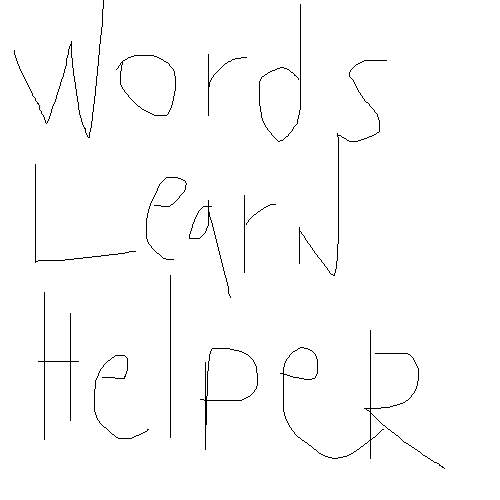 Words
LearN
HelpeR